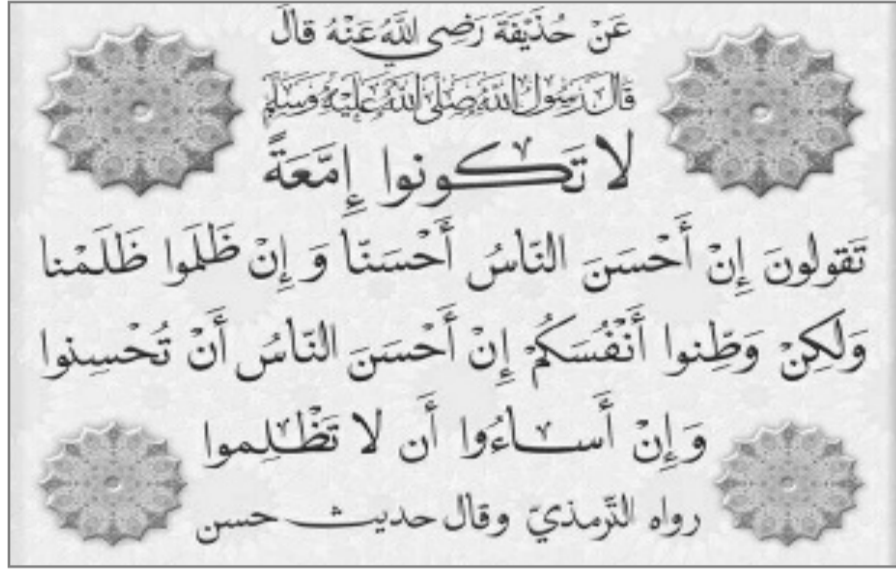 عَنْ حُذَيْفَةَ رَضِي اللَّهُ عَنْهُ قَالَ
قَالَ رَسُولُ اللَّهِ صَلَّى اللَّهُ عَلَيْهِ وَسَلَّمَ
لا تَكونوا إِمَّعَةً
تَقولونَ إِنْ أَحْسَنَ النّاسُ أَحْسَنّا وَ إِنْ ظَلَموا ظَلَمْنا
وَلَكِنْ وَطِّنوا أَنْفُسَكُمْ إِنْ أَحْسَنَ النّاسُ أَنْ تُحْسِنوا
وَ إِنْ أَساءُوا أَن لا تَظْلِموا
رواه التّرمذيّ وقال حديث حسن